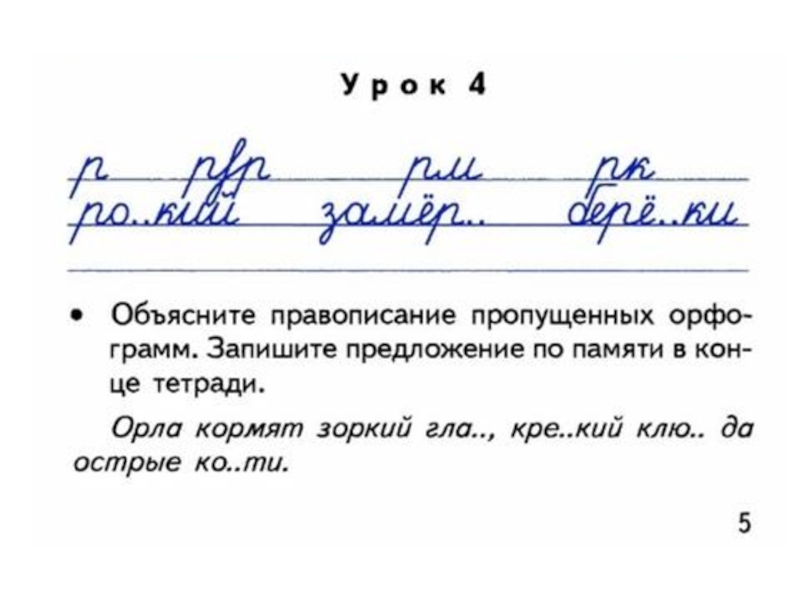 Урок 4
р рвр рм рк
ро..кий замёр.. берё..ки
• Объясните правописание пропущенных орфо-
грамм. Запишите предложение по памяти в кон-
це тетради.
Орла кормят зоркий гла.., кре..кий клю.. да
острые ко..ти.
5